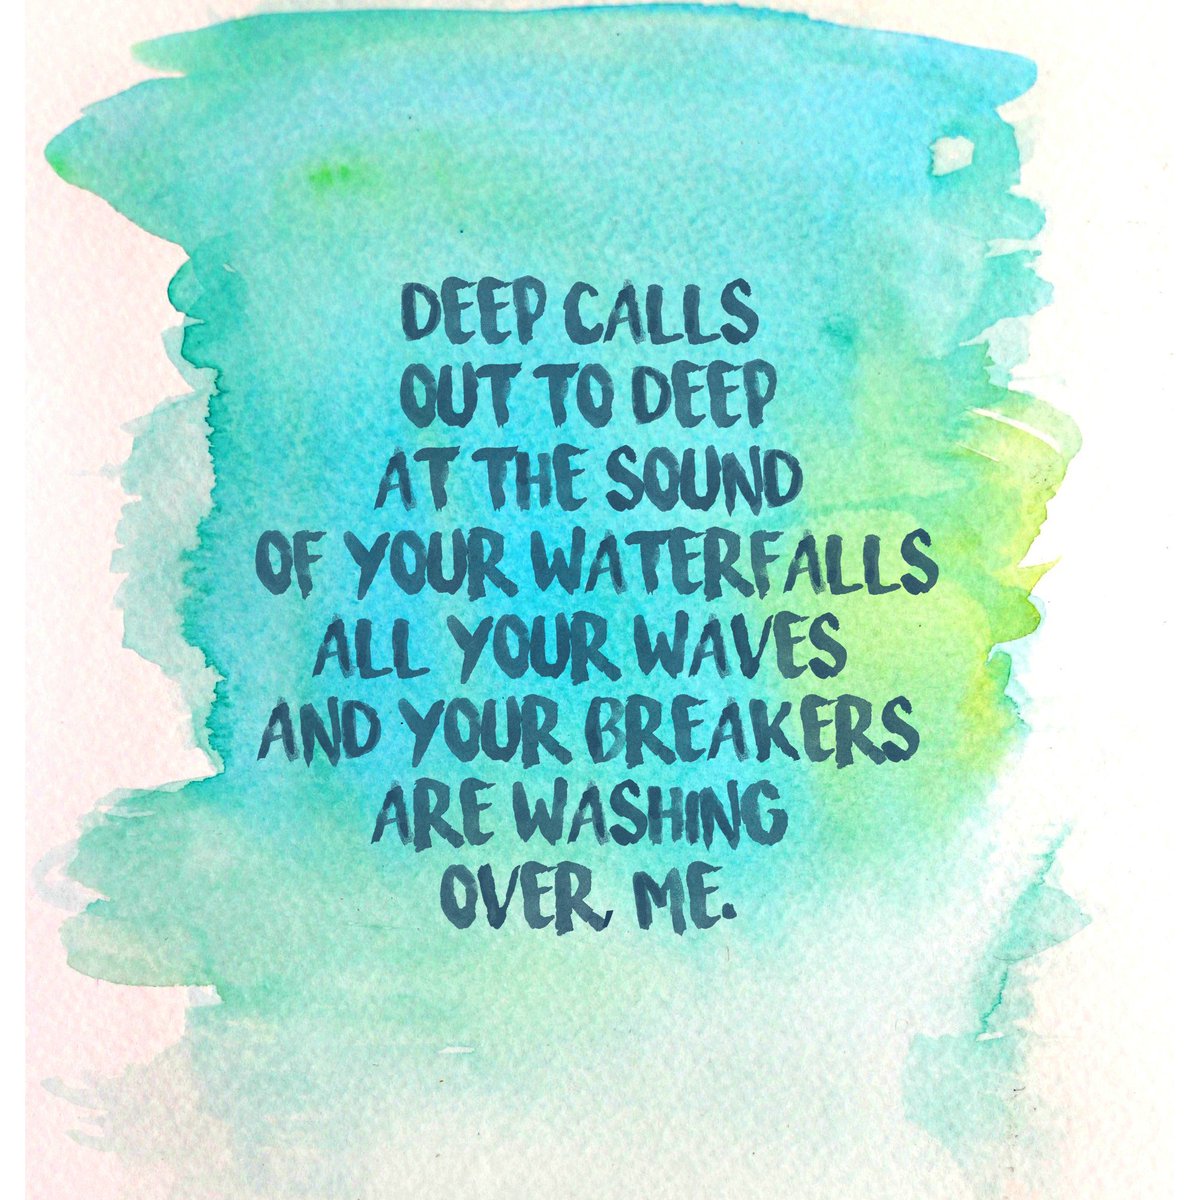 DEEP CALLS
OUT TO DEEP
AT THE SOUND
OF YOUR WATERFALLS
ALL YOUR WAVES
AND YOUR BREAKERS
ARE WASHING
OVER ME.